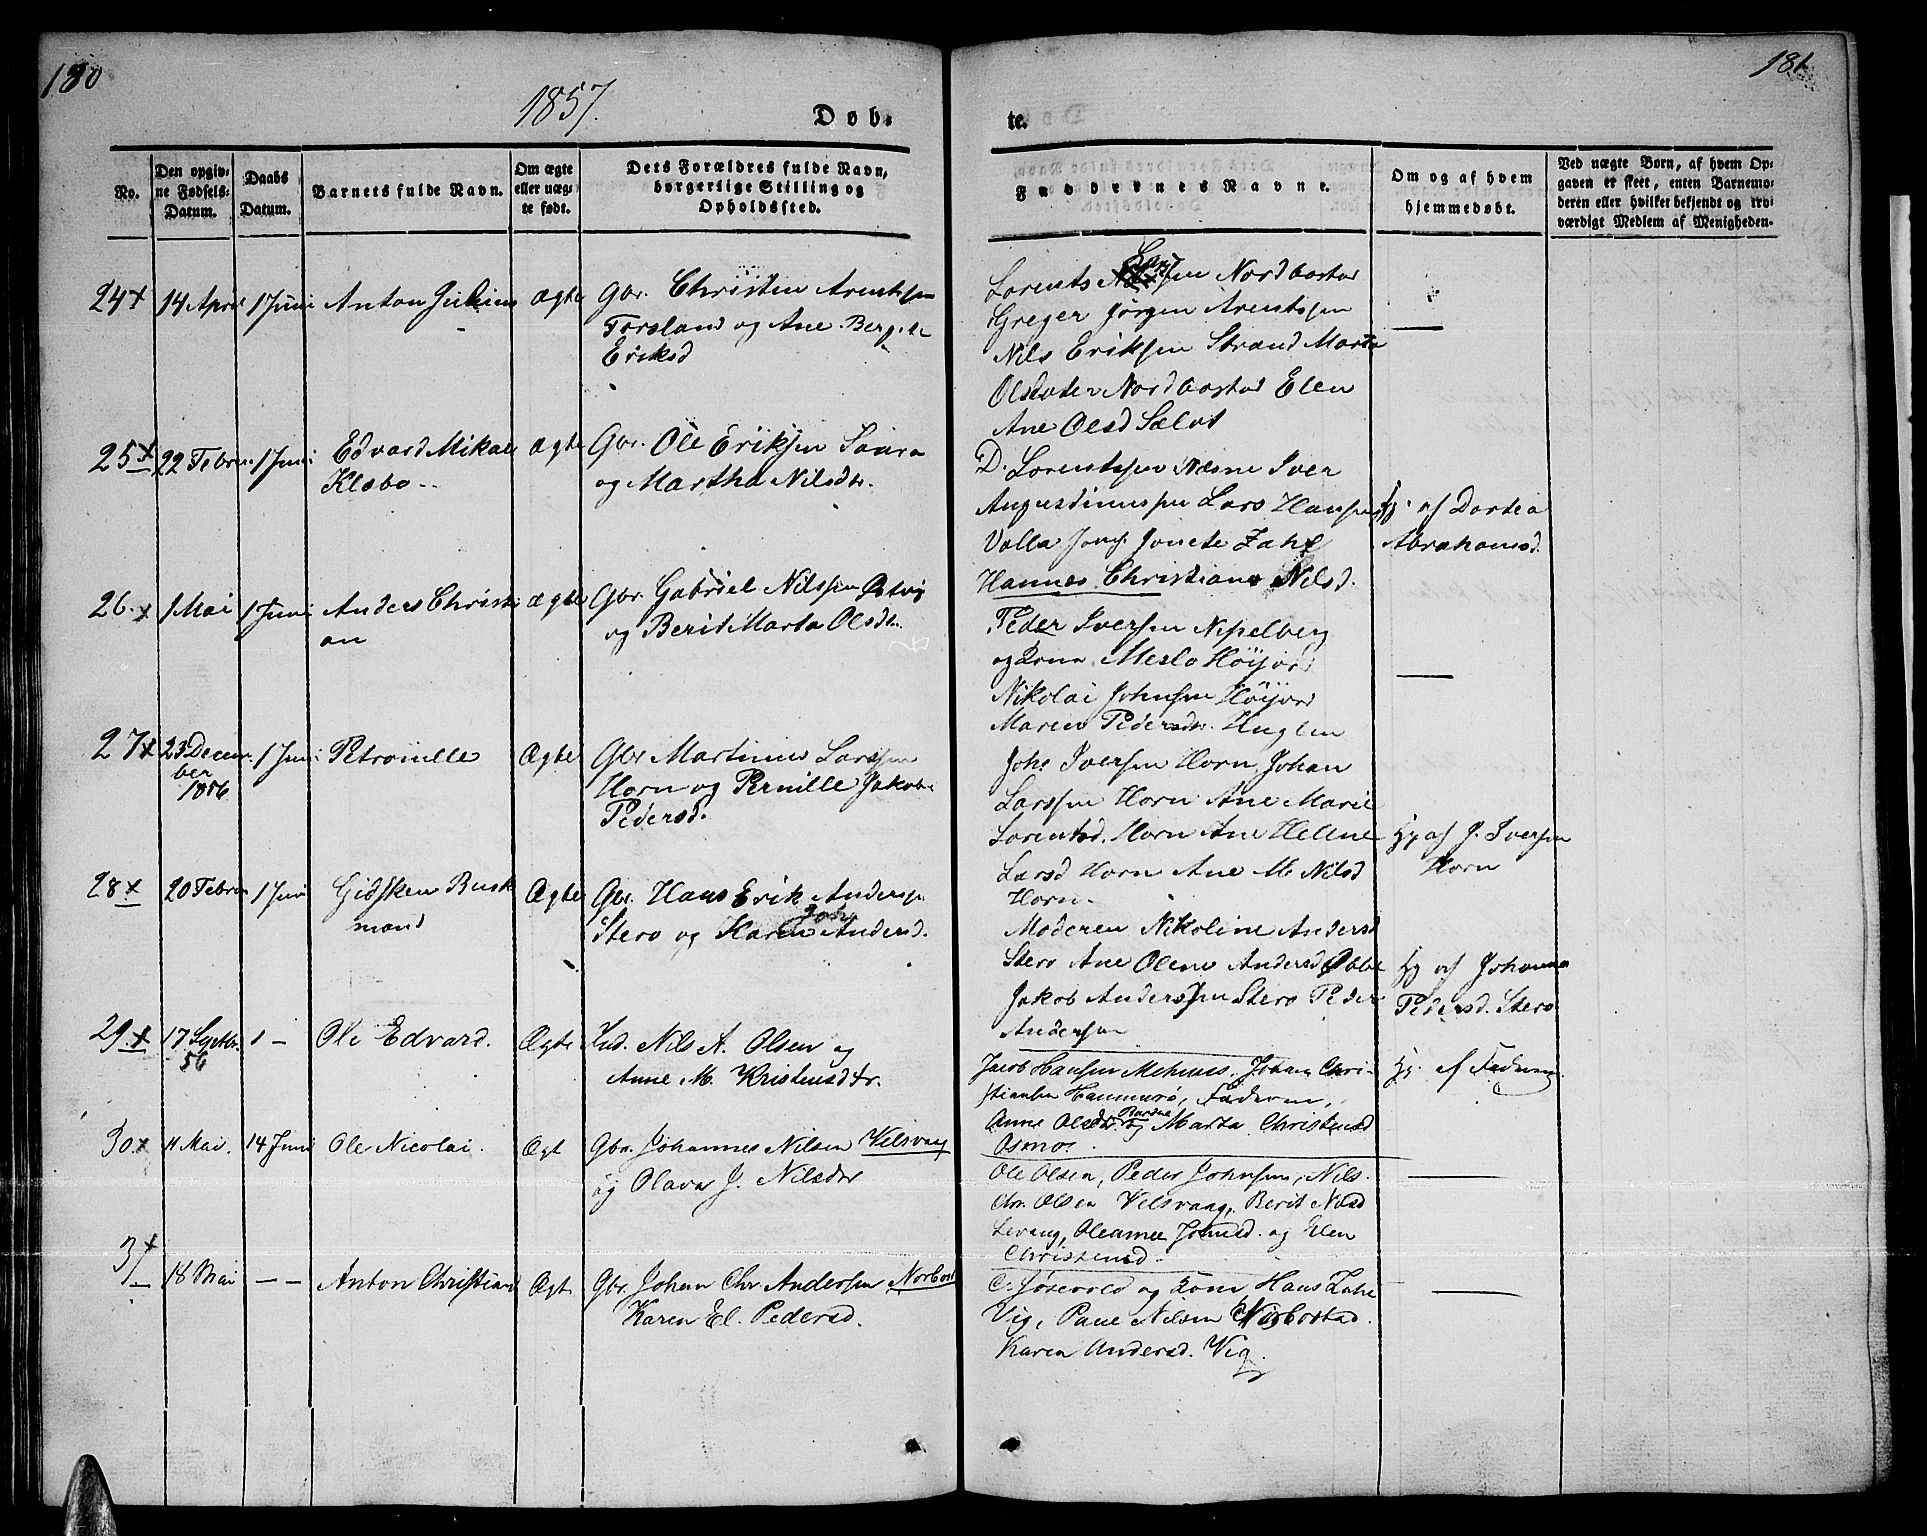 180
1857.
Døb-
te.
181
No.
Den opgiv-
ne Fødsels-
Datum.
Daabs
Datum.
Barnets fulde Navn.
Om ægte
eller uæg-
te født.
Dets Forældres fulde Navn,
borgerlige Stilling og
Opholdssted.
Faddernes Navne.
Om og af hvem
hjemmedøbt.
Ved uægte Børn, af hvem Op-
gaven er skeet, enten Barnemo-
deren eller hvilket bekjendt og tro-
værdigt Medlem af Menigheden.
24 x 14 April 1 Juni Anton Julius Ægte Gbr. Christen Arentssen
Forsland og Ane Bergite
Eriksd
Lorents Nordbostad
Greger Jörgen Arentssen
Nils Eriksen Strand Marta
Olsdater Nordbostad Elen
Ane Olsd
25 x 22 Febru. 1 Juni Edvard Mikal
Klæbo
Ægte Gbr. Ole Eriksen Saura
og Martha Nilsdr.
D. Lorentssen Næsne Iver
Augustinussen Lars Hansen
Valla Jomf. Jonete Zahl
Hannes Christiane Nilsd.
Hj. af Dortea
Abrahamsd.
26. x 1 Mai 1 Juni Anders Christi
an
Ægte Gbr. Gabriel Nilssen Østvig
og Berit Marta Olsdr.
Peder Iversen Nipelberg
og Kone Meslo Höijord
Nikolai Johnsen Höijord
Maren Pedersdr. Huglen
27 x 23 Decem-
ber
1856
1 Juni Petronille Ægte Gbr Martinus Larssen
Horn og Pernille Jakob.
Pedersd.
Johs Iversen Horn Johan
Larssen Horn Ane Marie
Lorentsd. Horn Ane Helene
Larsd Horn Ane M. Nilsd
Horn
Hj af J. Iversen
Horn
28 x 20 Febru 1 Juni Gidsken Busk
mand
Ægte Gbr. Hans Erik Anderss.
Stero og Karen Andersd.
Moderen Nikoline Andersd
Stero Ane Olene Andersd
Jakob Anderssen Stero Peder
Andersen
Hj af Johanna
Pedersd. Stero
29. x 17 Septbr.
56
1 — Ole Edvard. Ægte Ind. Nils A. Olsen og
Anne M. Kristensdtr.
Jacob Hansen Mehuus, Johan Chri-
stiansen Hammerø, Faderen,
Anne Olsdtr. og Marta Christensd
Osmoe
Hj. af Faderen
30. x 11 Mai. 14 Juni Ole Nicolai. Ægt Gbr. Johannes Nilsen Velsvaag
og Olava J. Nilsdtr
Ole Olsen, Peder Johnsen, Nils
Chr. Olsen Velsvaag, Berit Nilsd
Levang, Oleanna Johnsd. og Elen
Christensd.
31 x 18 Mai — — Anton Christian Ægt Gbr. Johan Chr Andersen Norbost
Karen El. Pedersd.
C. Josevold og Kone Hans Zahl
Vig, Paul Nilsen Norbostad.
Karen Andersd. Vig.